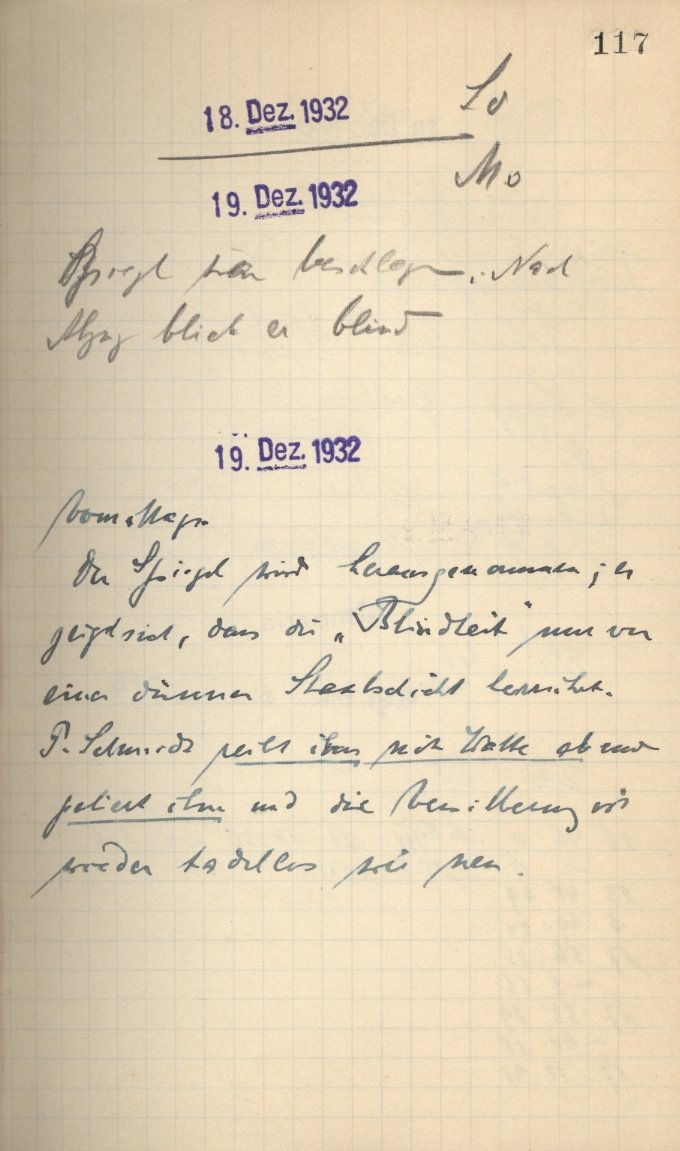 117
18. Dez. 1932 So
19. Dez. 1932 Mo
Spiegel war beschlagen. Nach
Abzug blieb er blind
19. Dez. 1932
Vormittags.
Der Spiegel wird herausgenommen; es
zeigt sich, dass die „Blindheit" nur von
einer dünnen Staubschicht herrührt.
P. Schmidt reibt ihn mit Watte ab und
poliert ihn und die Versilberung ist
wieder tadellos wie neu.